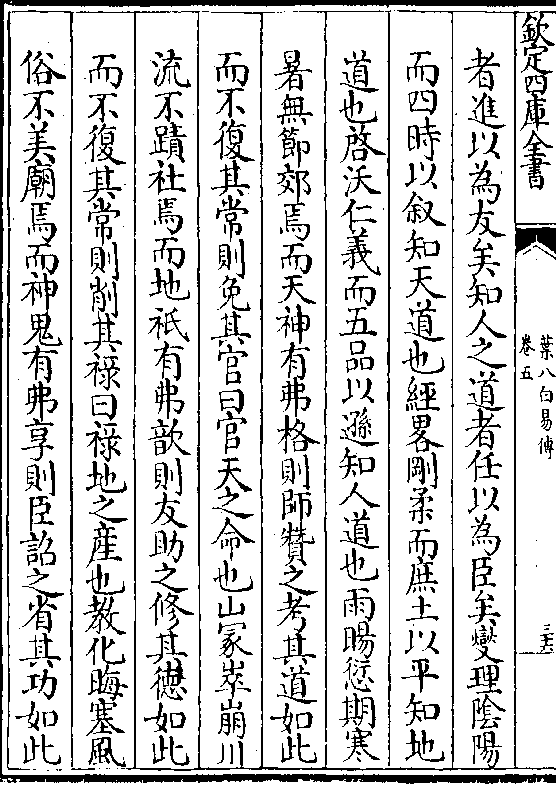 欽定四庫全書
葉八白易傳
卷五
三六
者進以為友矣知人之道者任以為臣矣燮理陰陽
而四時以叙知天道也經畧剛柔而庶土以平知地
道也啓沃仁義而五品以遜知人道也雨暘愆期寒
暑無節郊焉而天神有弗格則師贊之考其道如此
而不復其常則免其官曰官天之命也山冢崒崩川
流不蹟社焉而地祇有弗歆則友助之修其德如此
而不復其常則削其祿曰祿地之産也教化晦塞風
俗不美廟焉而神鬼有弗享則臣詔之省其功如此